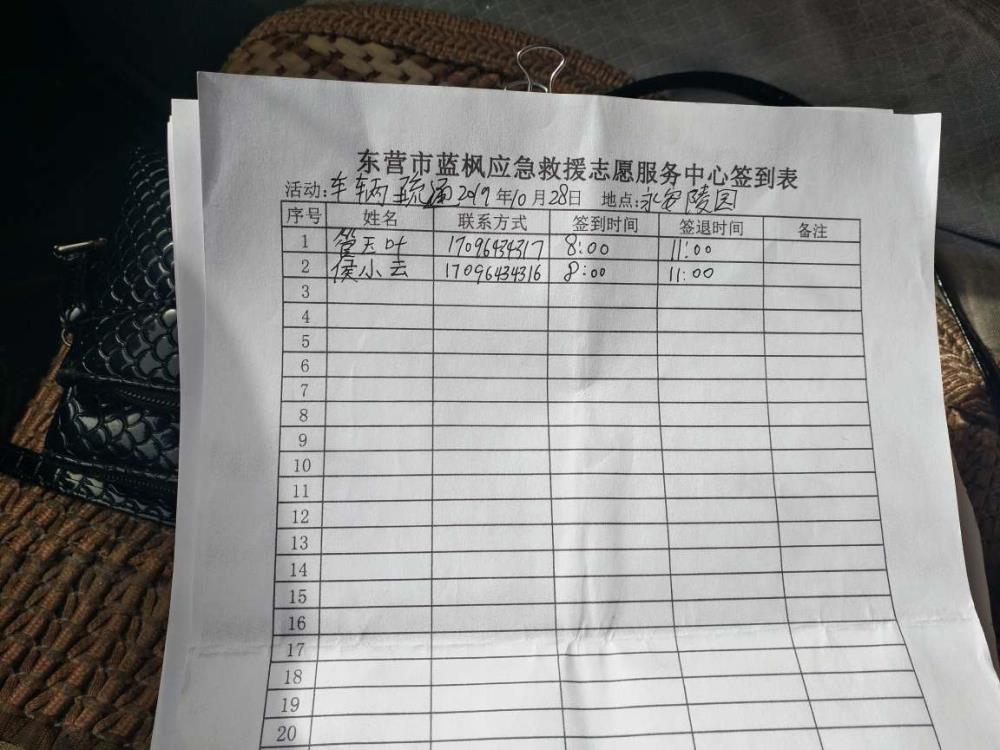 东营市蓝枫应急救援志愿服务中心签到表
活动:车辆疏通 2019年10月28日 地点:永安陵园
序号 姓名 联系方式 签到时间 签退时间 备注
1 管玉叶 17096434317 8:00 11:00
2 侯小云 17096434316 8:00 11:00
3
4
5
6
7
8
9
10
11
12
13
14
15
16
17
18
19
20